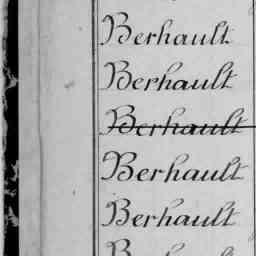 Berhault
Berhault
Berhault
Berhault
Berhault